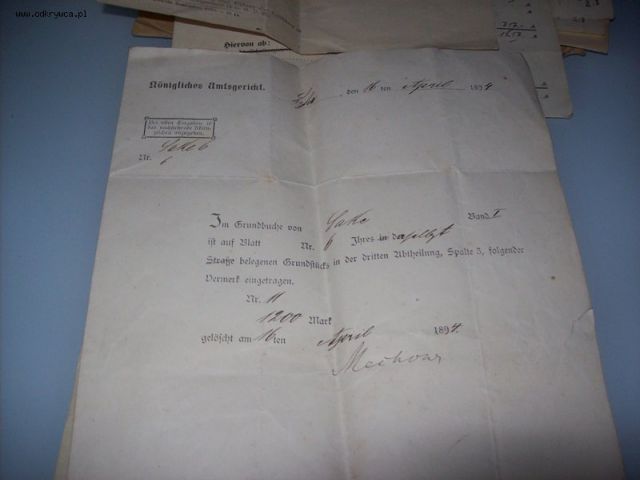 www.odkrywca.pl
Hiervon ab:
Königliches Amtsgericht.
den 16 ten April 1894
Bei allen Eingaben ist
das nachstehende Akten-
zeichen anzugeben.
Sake 6
Nr. 6
Im Grundbuche von Sake Band I
ist auf Blatt Nr. 6 Ihres in daselbst
Straße belegenen Grundstücks in der dritten Abtheilung, Spalte 5, folgender
Vermerk eingetragen.
Nr. 11
1200 Mark
gelöscht am 16ten April 1894.